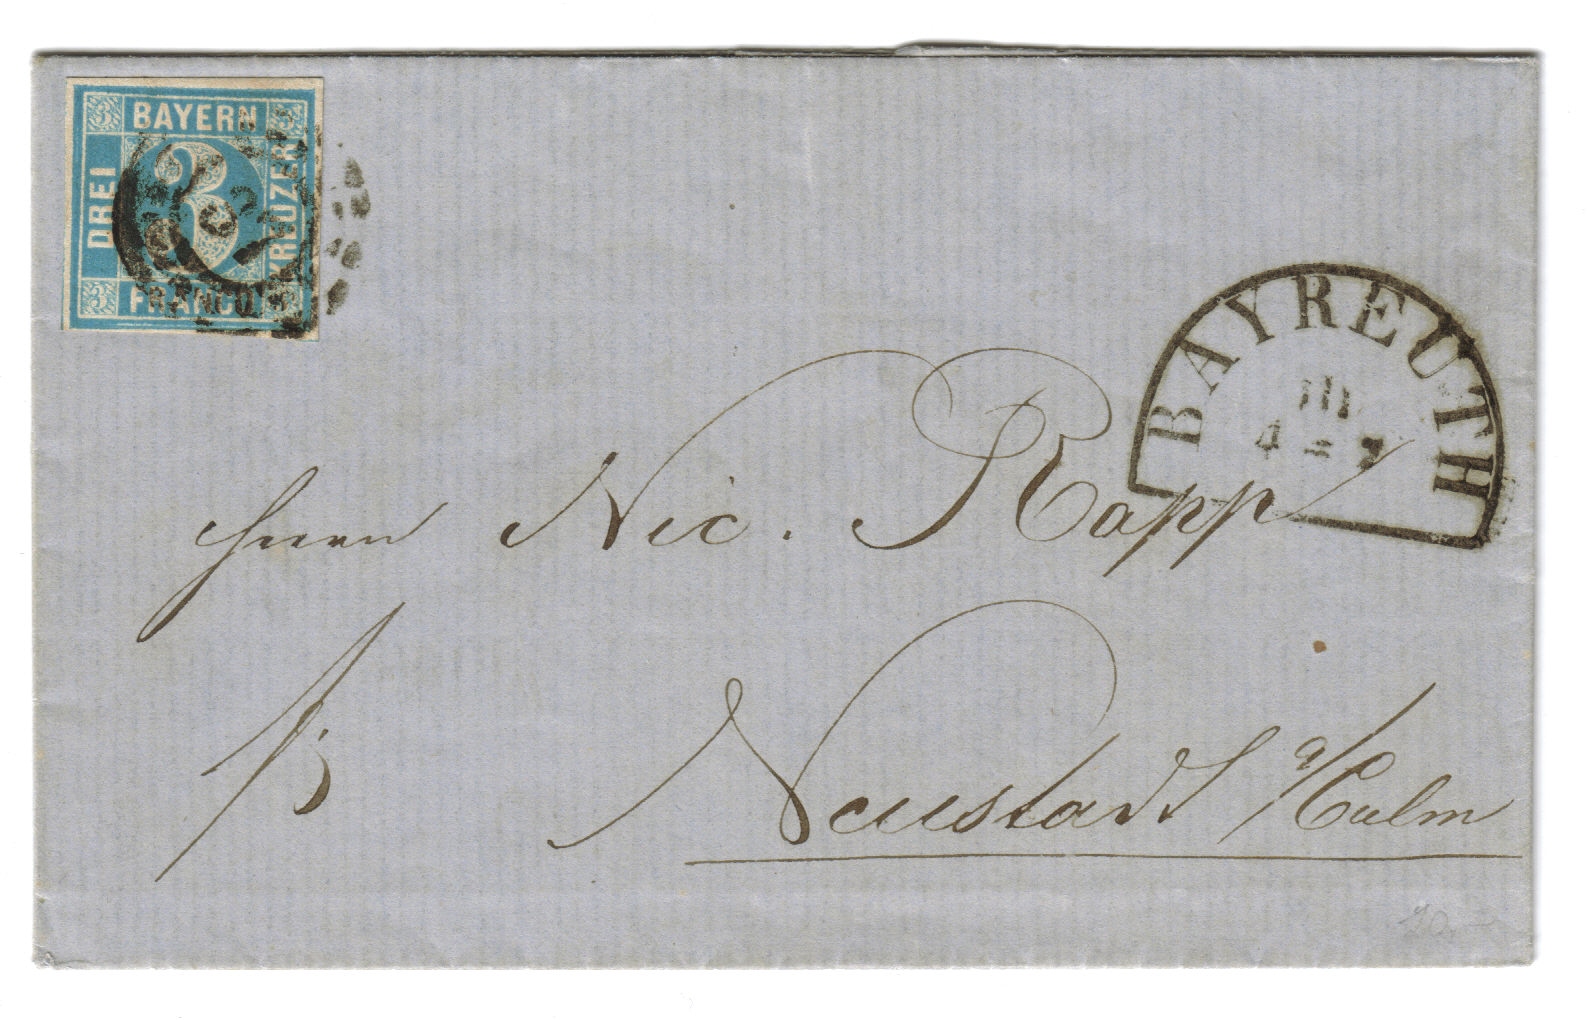 BAYERN
DREI
3
KREUZER
FRANCO
BAYREUTH
III
Herrn Nic. Rapp
Neustadt a/Culm